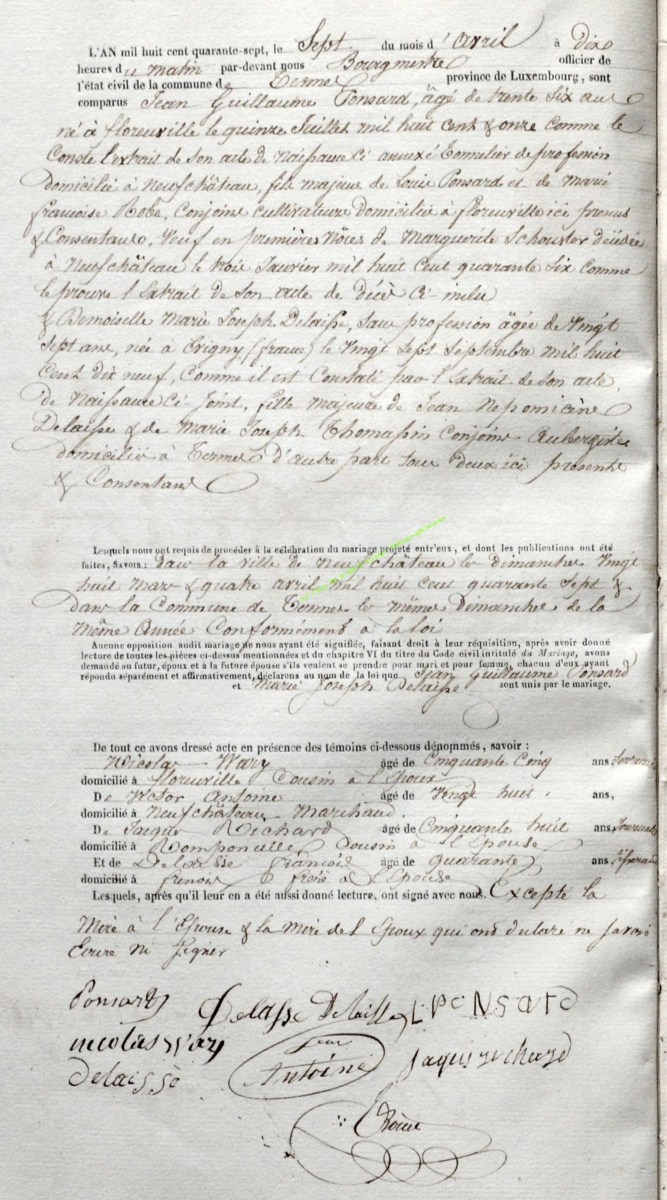 L'AN mil huit cent quarante-sept, le Sept du mois d'avril à dix
heures du matin par-devant nous Bourgmestre officier de
l'état civil de la commune de Termes province de Luxembourg, sont
comparus Jean Guillaume Ponsard, âgé de trente six ans
né à florenville le quinze Juillet mil huit cent & onze comme le
Conste l'extrait de son acte de Naissance ci annexé Tonnelier de profession
domicilié à Neufchâteau, fils majeur de Louis Ponsard et de marie
françoise Robe, Conjoins cultivateurs domiciliés à florenville ici présens
& Consentans, Veuf en premières Nôces de Marguerite Schouster décédée
à Neufchâteau le trois Janvier mil huit Cent quarante Six comme
le prouve l'Extrait de Son acte de décès ci inclu
& Demoiselle Marie Joseph Delaisse, Sans profession âgée de Vingt
Sept ans, née à Evigny (france) le Vingt Sept Septembre mil huit
Cent dix neuf, Comme il est Constaté par l'Extrait de Son acte
de Naissance Ci Joint, fille majeure de Jean Nepomicène
Delaisse & de Marie Joseph Thomassin conjoins Aubergistes
domiciliés à Termes d'autre part tous deux ici présents
& Consentans
Lesquels nous ont requis de procéder à la célébration du mariage projeté entr'eux, et dont les publications ont été
faites, SAVOIR: dans la ville de Neufchâteau les dimanches Vingt
huit Mars & quatre avril mil huit Cent quarante Sept &
dans la Commune de Termes les même Dimanches de la
Même Année Conformément à la loi
Aucune opposition audit mariage ne nous ayant été signifiée, faisant droit à leur réquisition, après avoir donné
lecture de toutes les pièces ci-dessus mentionnées et du chapitre VI du titre du Code civil intitulé du Mariage, avons
demandé au futur, époux et à la future épouse s'ils veulent se prendre pour mari et pour femme, chacun d'eux ayant
répondu séparément et affirmativement, déclarons au nom de la loi que Jean Guillaume Ponsard
et Marie Joseph Delaisse sont unis par le mariage.
De tout ce avons dressé acte en présence des témoins ci-dessous dénommés, savoir :
Nicolas Wary âgé de Cinquante Cinq ans
domicilié à florenville Cousin à l'Epoux
De Victor Antoine âgé de Vingt huit ans,
domicilié à Neufchâteau Marchand
De Jaques Richard âgé de Cinquante huit ans,
domicilié à Romponcelle Cousin à l'Epouse
Et de Delaisse François âgé de quarante ans
domicilié à frenois frère à l'Epouse
Lesquels, après qu'il leur en a été aussi donné lecture, ont signé avec nous. Excepté la
Mère à l'Epouse & la Mère de l'Epoux qui ont déclaré ne savoir
Ecrire ni Signer
Ponsard Delasse Delaisse L PONSARD
nicolas wary Antoine Jaques richard
delaissè